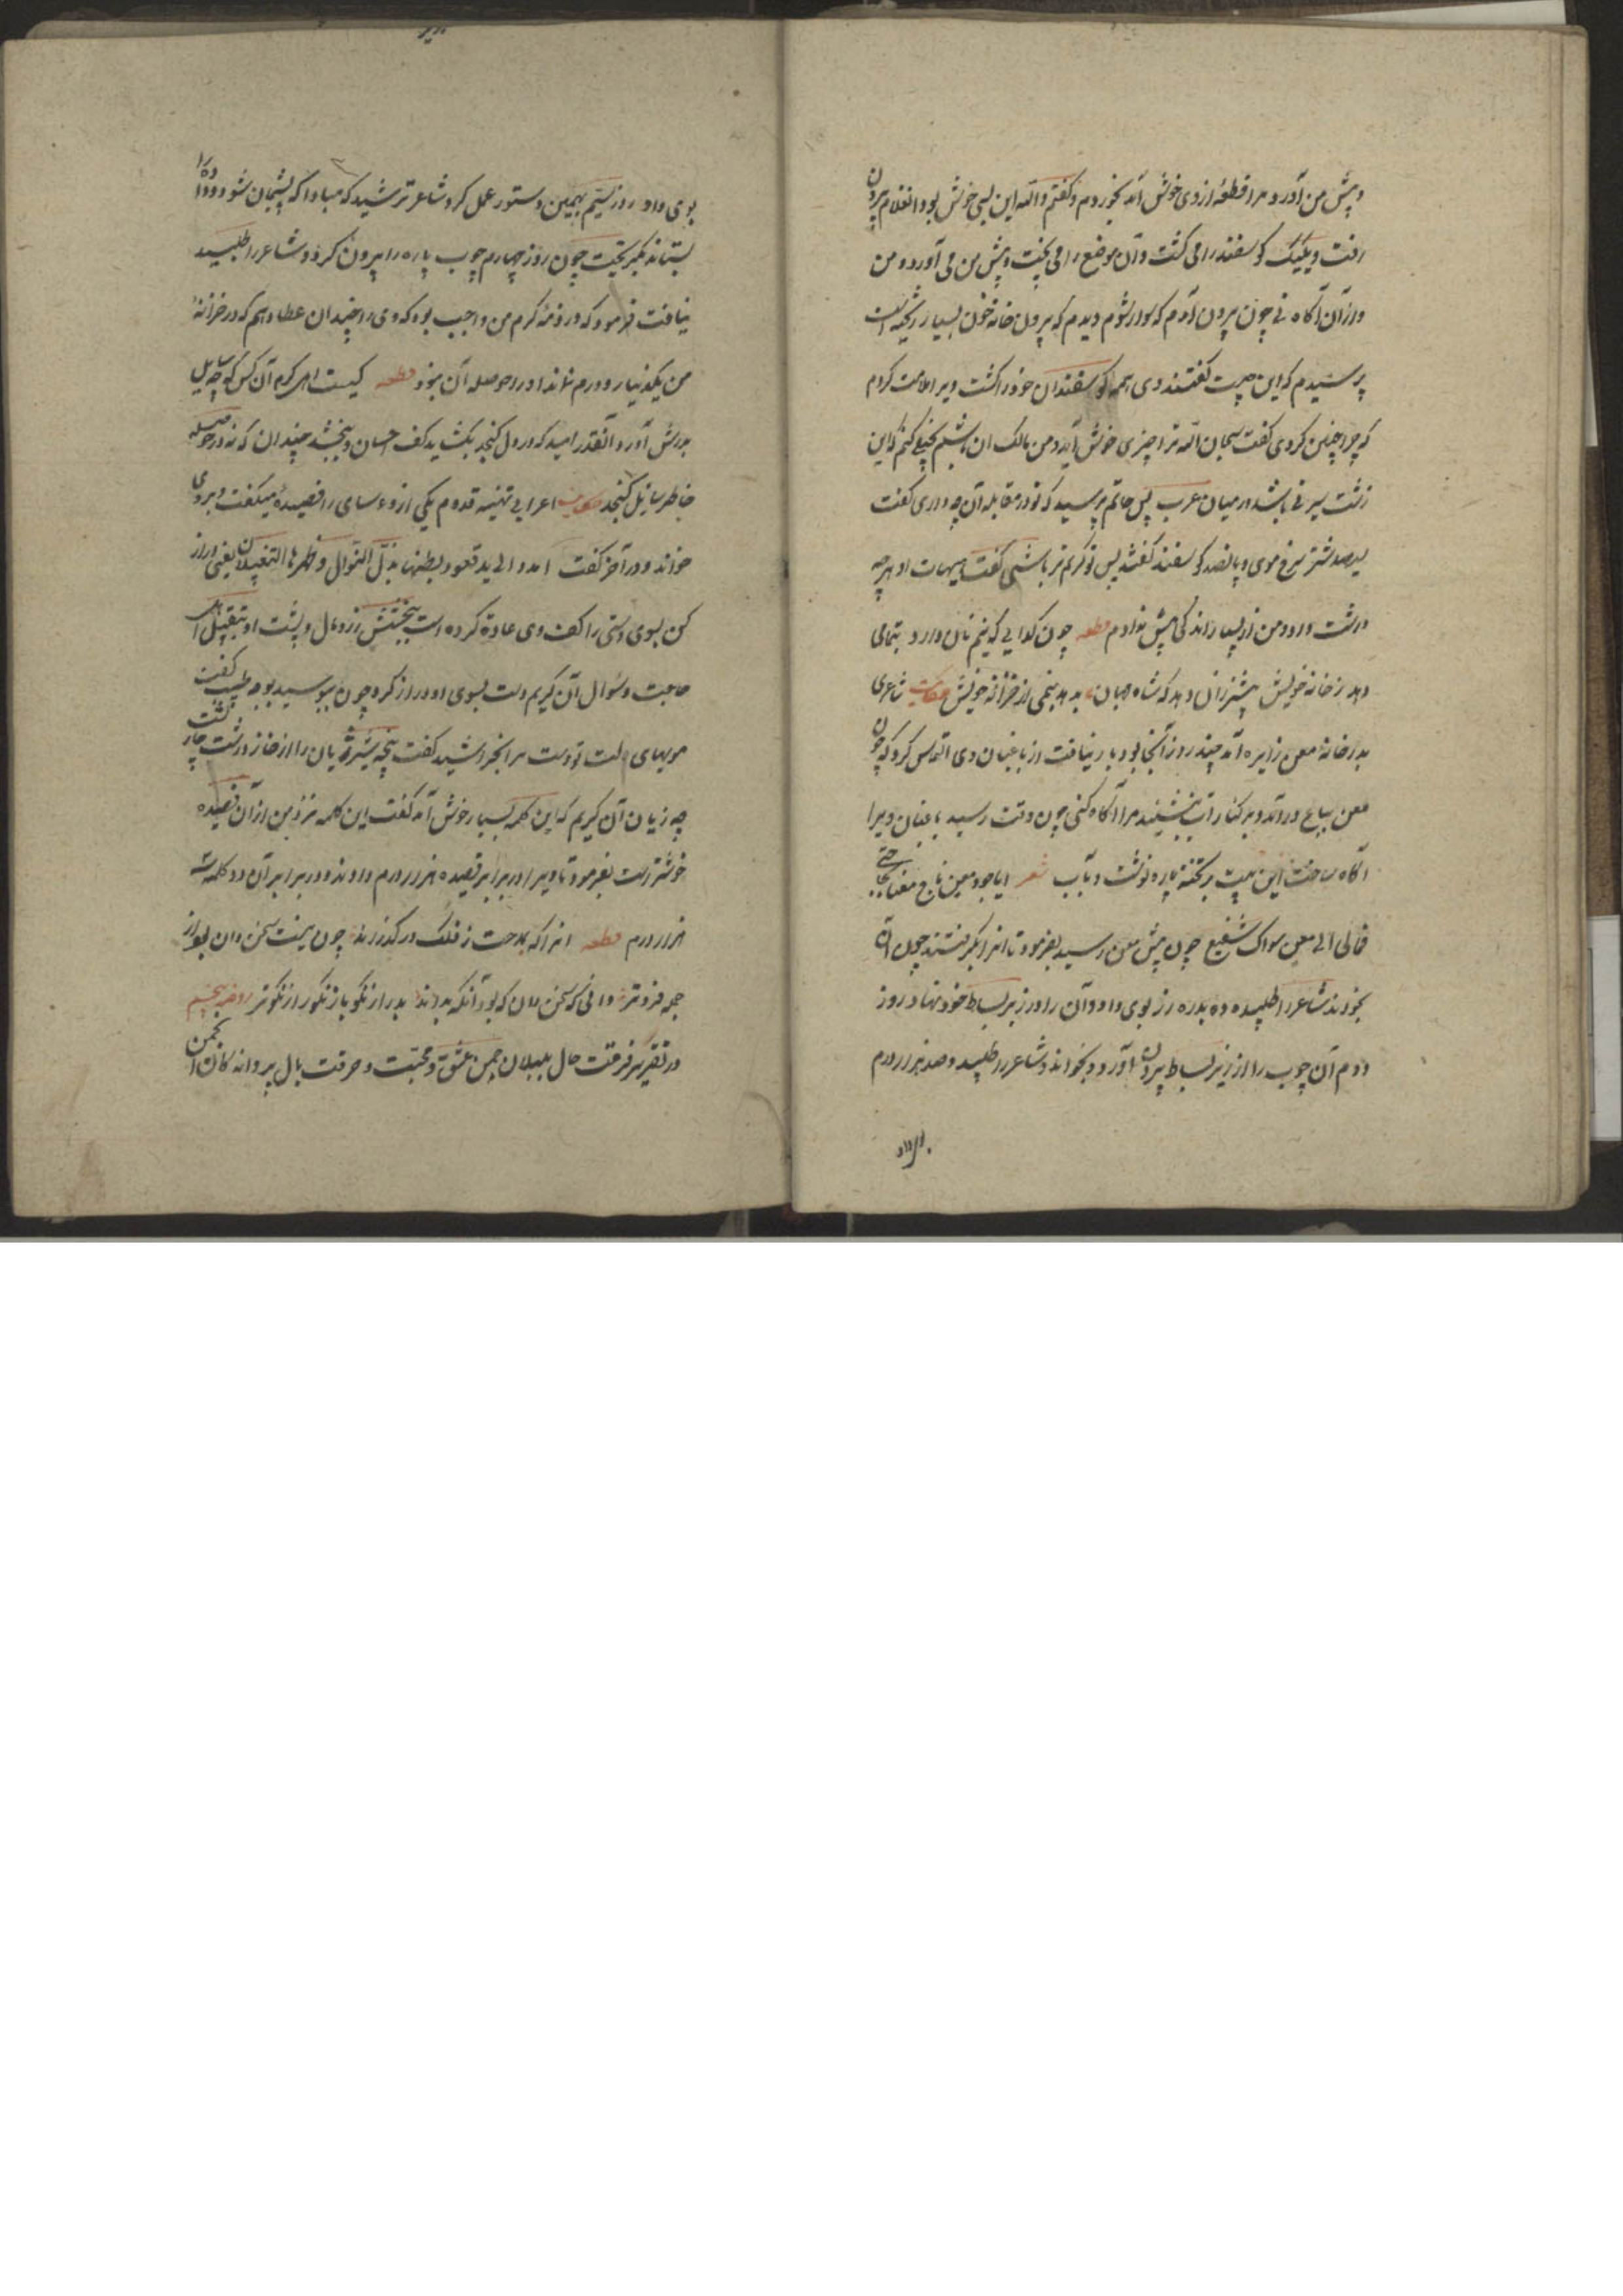 و پیش من آورد مرا قطعهٔ از وی خوش آمد بخوردم و گفتم والله این بسی خوش بود آنغلام بیرون
رفت و یک یک گوسفند را می کشت و آن موضع را می پخت و پیش من می آورد و من
از آن آگاه نی چون بیرون آمدم که سوار شوم دیدم که بیرون خانه خون بسیار ریخته است
پرسیدم که این چیست گفتند وی همه گوسفندان خود را کشت ویرا ملامت کردم
که چرا چنین کردی گفت سبحان الله ترا چیزی خوش آید و من مالک آن باشم بخیلی کنم که این
زشت سیرتی باشد در میان عرب پس حاتم پرسیدند که تو در مقابله آن چه دادی گفت
سیصد شتر سرخ موی و پانصد گوسفند گفتند پس تو کریم تر باشی گفت هیهات او هر چه
داشت داد و من از بسیار اندکی بیش ندادم قطعه چون گدایی که نیم نان دارد بتمامی
دهد ز خانه خویش بیشتر زان دهد که شاه جهان بدهد نیمی از خزانه خویش حکایت شاعری
بدر خانه معن زایده آمد چند روز آنجا بود بار نیافت از باغبان وی التماس کرد که چون
معن بباغ درآید و بر کنار آب بنشیند مرا آگاه کنی چون وقت رسید باغبان ویرا
آگاه ساخت این بیت بر تخته پاره نوشت و بآب شعر ایا جود معن ناج معنا بحاجتی
فمالی الی معن سواک شفیع چون پیش معن رسید بفرمود تا آنرا بگرفتند چون آن
بخواند شاعر را طلبیده ده بدره زر بوی داد و آن را در زیر بساط خود نهاد روز
دوم آن چوب را از زیر بساط بیرون آورد و بخواند و شاعر را طلبید و صد هزار درم
بوی داد روز سیم بهمین دستور عمل کرد شاعر ترسید که مبادا که پشیمان شود و داده را
بستاند بگریخت چون روز چهارم چوب پاره را بیرون کرد و شاعر را طلبید
نیافت فرمود که در ذمهٔ کرم من واجب بود که وی را چندان عطا دهم که در خزانهٔ
من یک دینار و درم نماند او را حوصله آن نبود قطعه کیست اهل کرم آن کس که چو سایل
بدرش آورد آنقدر امید که در دل گنجد بگشاید کف احسان و ببخشد چندان که نه در حوصله
خاطر سایل گنجد حکایت اعرابی تهنیه قدوم یکی از رؤسای را قصیده میگفت و بر وی
خواند و در آخر گفت امدد الی ید تعود بطنها بذل النوال و ظهرها التقبیلا یعنی دراز
کن بسوی دستی را کف وی عادة کرده است ببخشش زر و مال و پشت او بتقبیل اهل
حاجت و سوال آن کریم دست بسوی او دراز کرد چون ببوسید بوجه طیبت گفت
مویهای لبت تو دست مرا بخراشید گفت پنجه شیر ژیان را از خار درشت خار پشت
چه زیان آن کریم که این کلمه بسیار خوش آمد گفت این کلمه نزد من از آن قصیده
خوشتر است بفرمود تا ویرا در برابر قصیده هزار درم دادند و در برابر آن دو کلمه سه
هزار درم قطعه آنرا که بمدحت ز فلک در گذرند چون نیست سخن دان بود از
جمله فروتر دانی که سخن دان که بود آنکه بداند بد را ز نکو باز نکو را ز نکوتر روضه پنجم
در تقریر فرقت حال بلبلان چمن عشق و محبت و حرقت بال پروانه کان انجمن